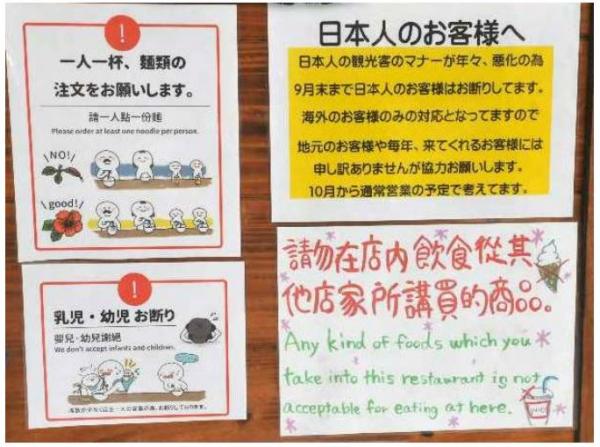 !
一人一杯、麺類の
注文をお願いします。
請一人點一份麵
Please order at least one noodle per person.
NO!
good!
!
乳児・幼児 お断り
嬰兒·幼兒謝絕
We don't accept infants and children.
日本人のお客様へ
日本人の観光客のマナーが年々、悪化の為
9月末まで日本人のお客様はお断りしてます。
海外のお客様のみの対応となってますので
地元のお客様や毎年、来てくれるお客様には
申し訳ありませんが協力お願いします。
10月から通常営業の予定で考えてます。
請勿在店内飲食從其
他店家所講買的商品。
Any kind of foods which you
take into this restaurant is not
acceptable for eating at here.